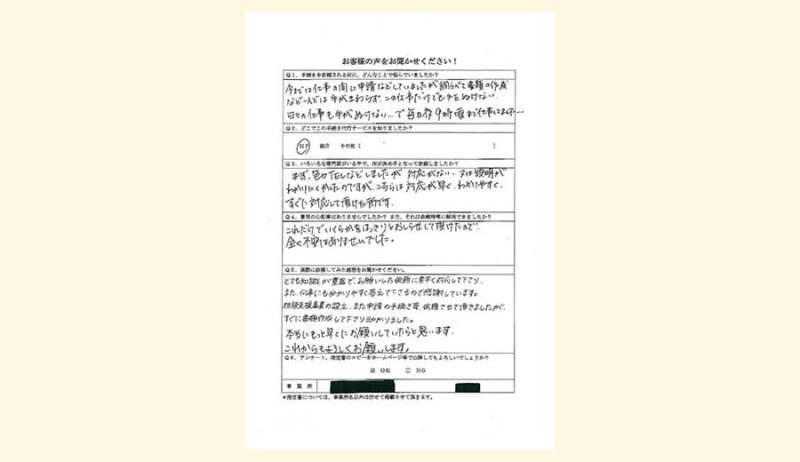 お客様の声をお聞かせください！
Q１．手続きを依頼される前に、どんなことで悩んでいましたか？
今までは仕事の間に申請などしていましたが 調らべて書類の作成
など一人では手がまわらず、この仕事だけでも手をぬけない、
日々の仕事も手がぬけない…で毎日夜9時頃まで仕事してました…
Q２．どこでこの手続き代行サービスを知りましたか？
HP 紹介 その他（ ）
Q３．いろいろな専門家がいる中で、何が決め手となって依頼しましたか？
まず、色々TELなどしましたが 対応がない、又は説明が
わかりにくかったのですが、こちらは対応が早く、わかりやすく、
すぐに対応して頂けた所です。
Q４．費用の心配事はありませんでしたか？また、それは依頼時等に解消できましたか？
これだけでいくらかをはっきりとおしらせして頂けたので、
全く不安はありませんでした。
Q５．実際に依頼してみた感想をお聞かせください。
とても知識が豊富で、お願いした依頼に素早く対応して下さり、
また、何事にも分かりやすく答えて下さるので感謝しています。
相談支援事業の設立、また申請の手続き等、依頼させて頂きましたが、
すぐに書類作成して下さり助かりました。
本当にもっと早くにお願いしていたらと思います。
これからもよろしくお願いします。
Q６．アンケート、指定書のコピーをホームページ等で公開してもよろしいでしょうか？
☑ OK ☐ NG
事業所
＊指定書については、事業所名以外は伏せて掲載させて頂きます。